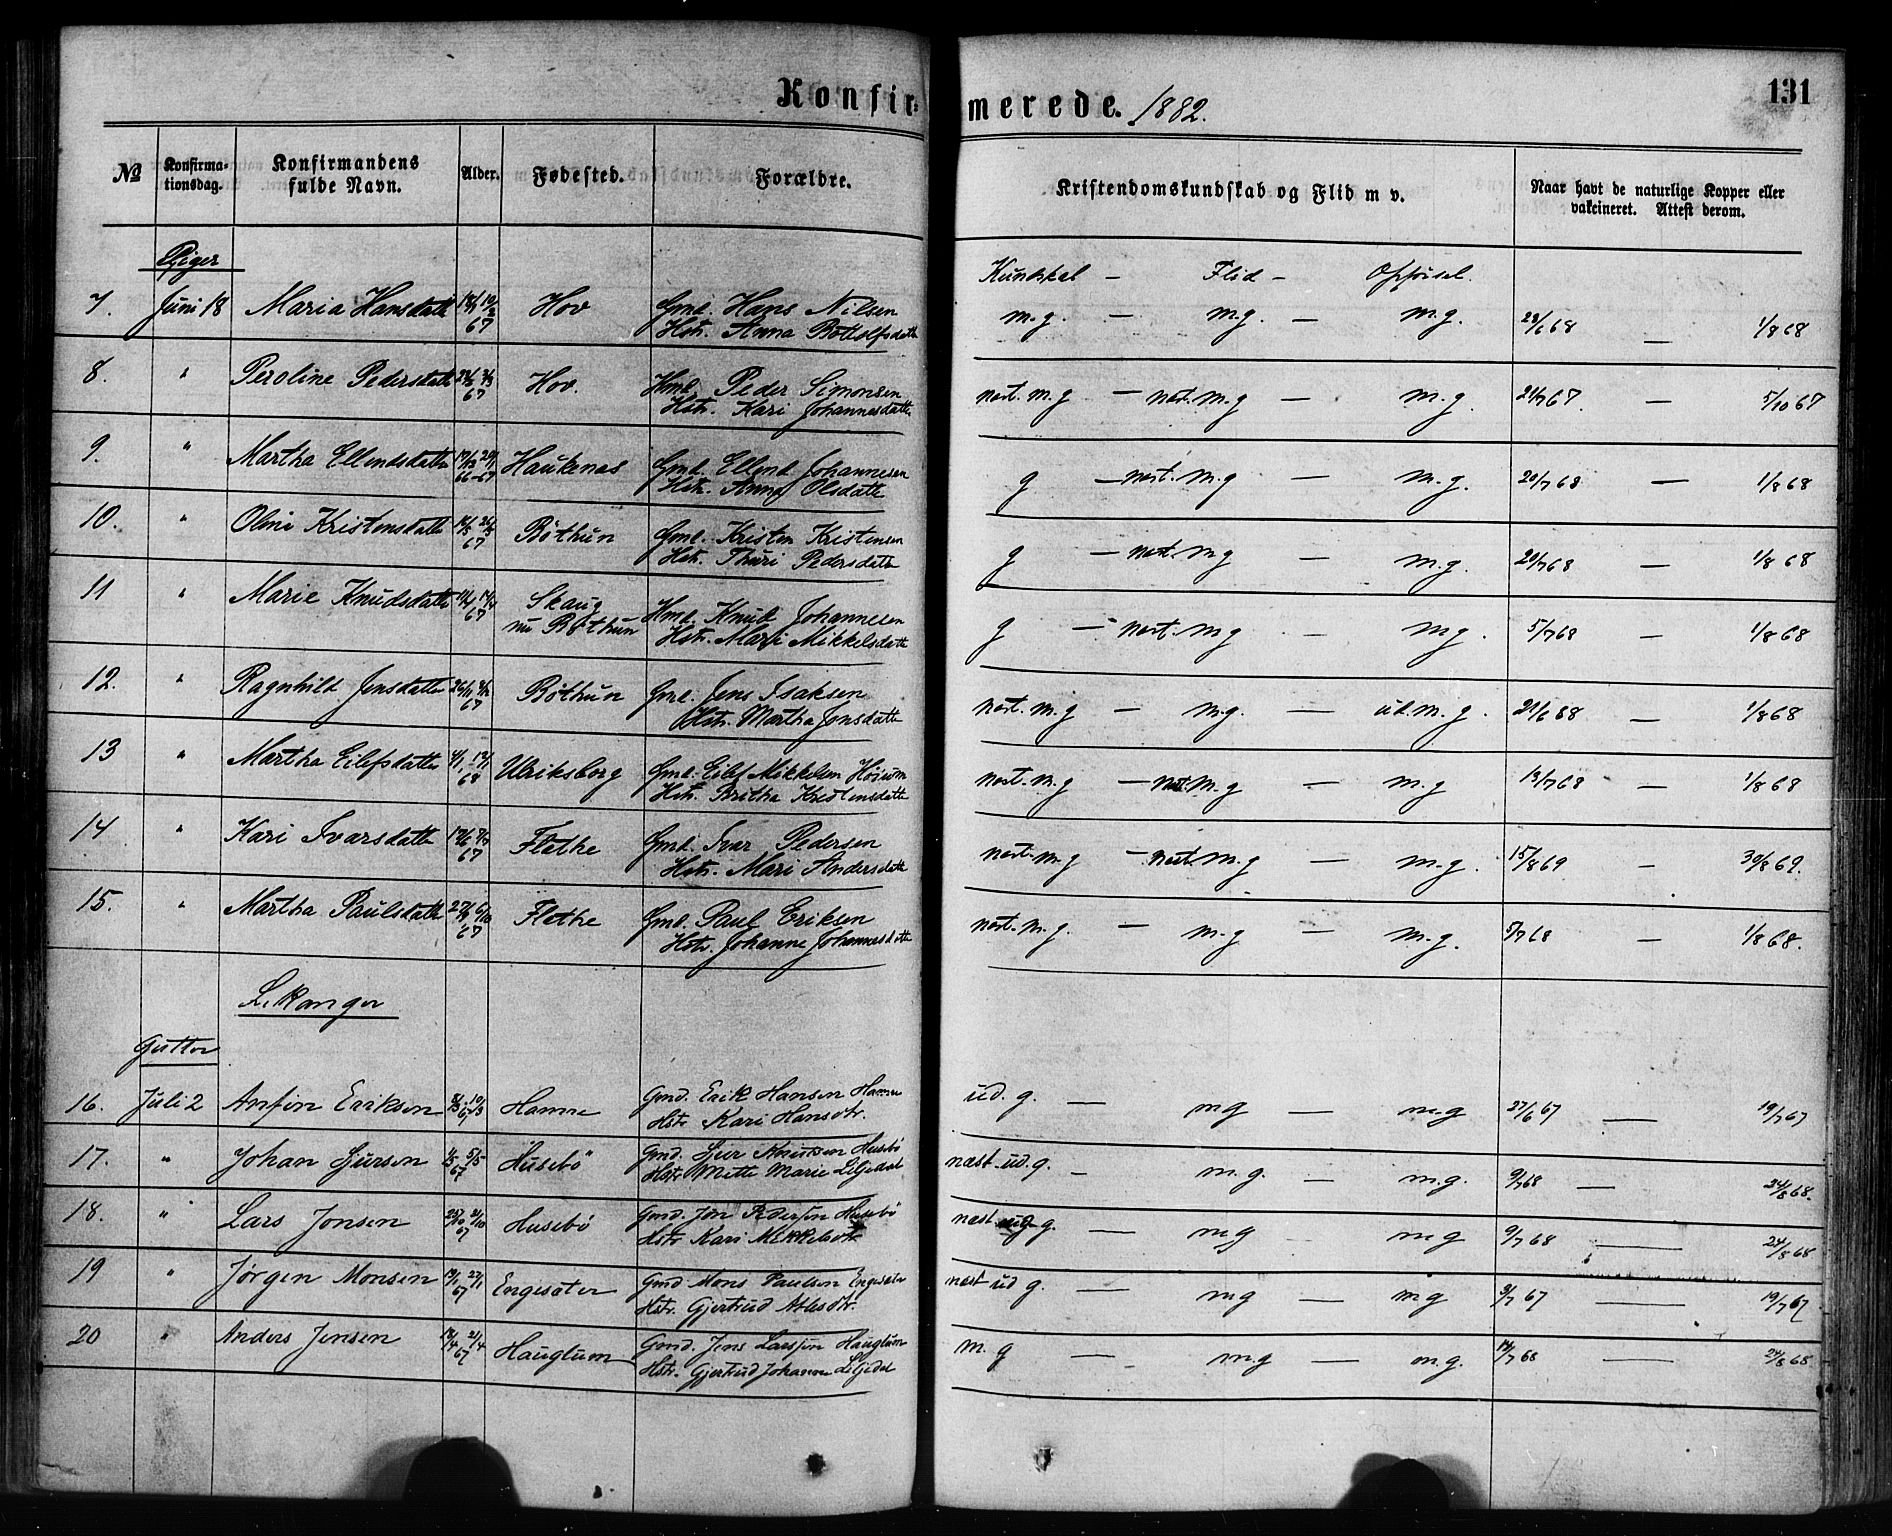 Konfirmerede. 1882.
131
No
Konfirmationsdag.
Konfirmandens fulde Navn.
Alder.
Fødested.
Forældre.
Kristendomskundskab og Flid m v.
Naar havt de naturlige Kopper eller vakcineret. Attest derom.
Piger
Kundskab – Flid – Opførsel.
7. Juni 18 Maria Hansdatt 67 Hov Gmd. Hans Nilsen
Hstr. Anna Bottolfsdatt
m.g. – m.g. – m.g. 23/6 68 – 1/8 68
8. " Peroline Pedersdatt 67 Hov. Hmd. Peder Simonsen
Hstr. Kari Johannesdatte
næst. m.g – næst. m.g – m.g. 21/7 67. – 5/10 67
9. " Martha Ellendsdatte 66-67 Haukenæs Gmd. Ellend Johannesen
Hstr. Anna Olsdatte
g – næst. m.g – m.g. 20/7 68 – 1/8 68
10. " Oline Kristensdatte 67 Bøthun Gmd. Kristen Kristensen
Hstr. Thuri Pedersdatte
g – næst. m g – m.g. 20/7 68 – 1/8 68
11 " Marie Knudsdatte 67 Skaug nu Bøthun Hmd. Knud Johannesen
Hstr. Mari Mikkelsdatte
g – næst. m g – m g. 5/7 68 – 1/8 68
12. " Ragnhild Jensdatte 67 Bøthun Gmd. Jens Isaksen
Hstr. Martha Jonsdatte
næst. m.g – m.g. – ud. m.g. 21/6 68 – 1/8 68
13 " Martha Eilefsdatte 68 Ulriksborg Gmd. Eilef Mikkelsen Høium
Hstr. Britha Kristensdatte
næst. m.g – næst. m.g – m.g 13/7 68 – 1/8 68
14 " Kari Ivarsdatte 67 Flethe Gmd. Ivar Pedersen
Hstr. Mari Andersdatte
næst. m.g – næst m.g – m.g. 15/8 69 – 30/8 69.
15. " Martha Paulsdatte 67 Flethe Gmd. Paul Eriksen
Hstr. Johanne Johannesdatte
næst. m.g. – m.g – m.g. 5/7 68 – 1/8 68.
Lekanger
Gutter
16. Juli 2 Anfin Eriksen 67 Hamre Gmd. Erik Hansen Hamre
Hstr Kari Hansdtr.
ud. g. – m g – m.g 27/6 67 – 19/7 67
17. " Johan Gjursen 67 Husebø Gmd. Gjur Knutsen Husebø
Hstr Mette Marie Liljedal
næst. ud. g. – m.g. – m.g. 9/7 68 – 24/8 68.
18. " Lars Jonsen 67 Husebø Gmd. Jon Pedersen Husebø
Hstr Kari Mikkelsdtr.
næst ud g. – m g – m g 9/7 68 – 24/8 68
19 " Jørgen Monsen 67 Engesæter Gmd Mons Paulsen Engesæter
Hstr. Gjertrud Atlesdtr.
næst ud g. – m g – m g 9/7 67 – 19/7 67
20 " Anders Jensen 67 Hauglum Gmd. Jens Larssen Hauglum
Hstr. Gjertrud Johanne Liljedal
m. g – m.g – m.g. 14/7 68 – 24/8 68